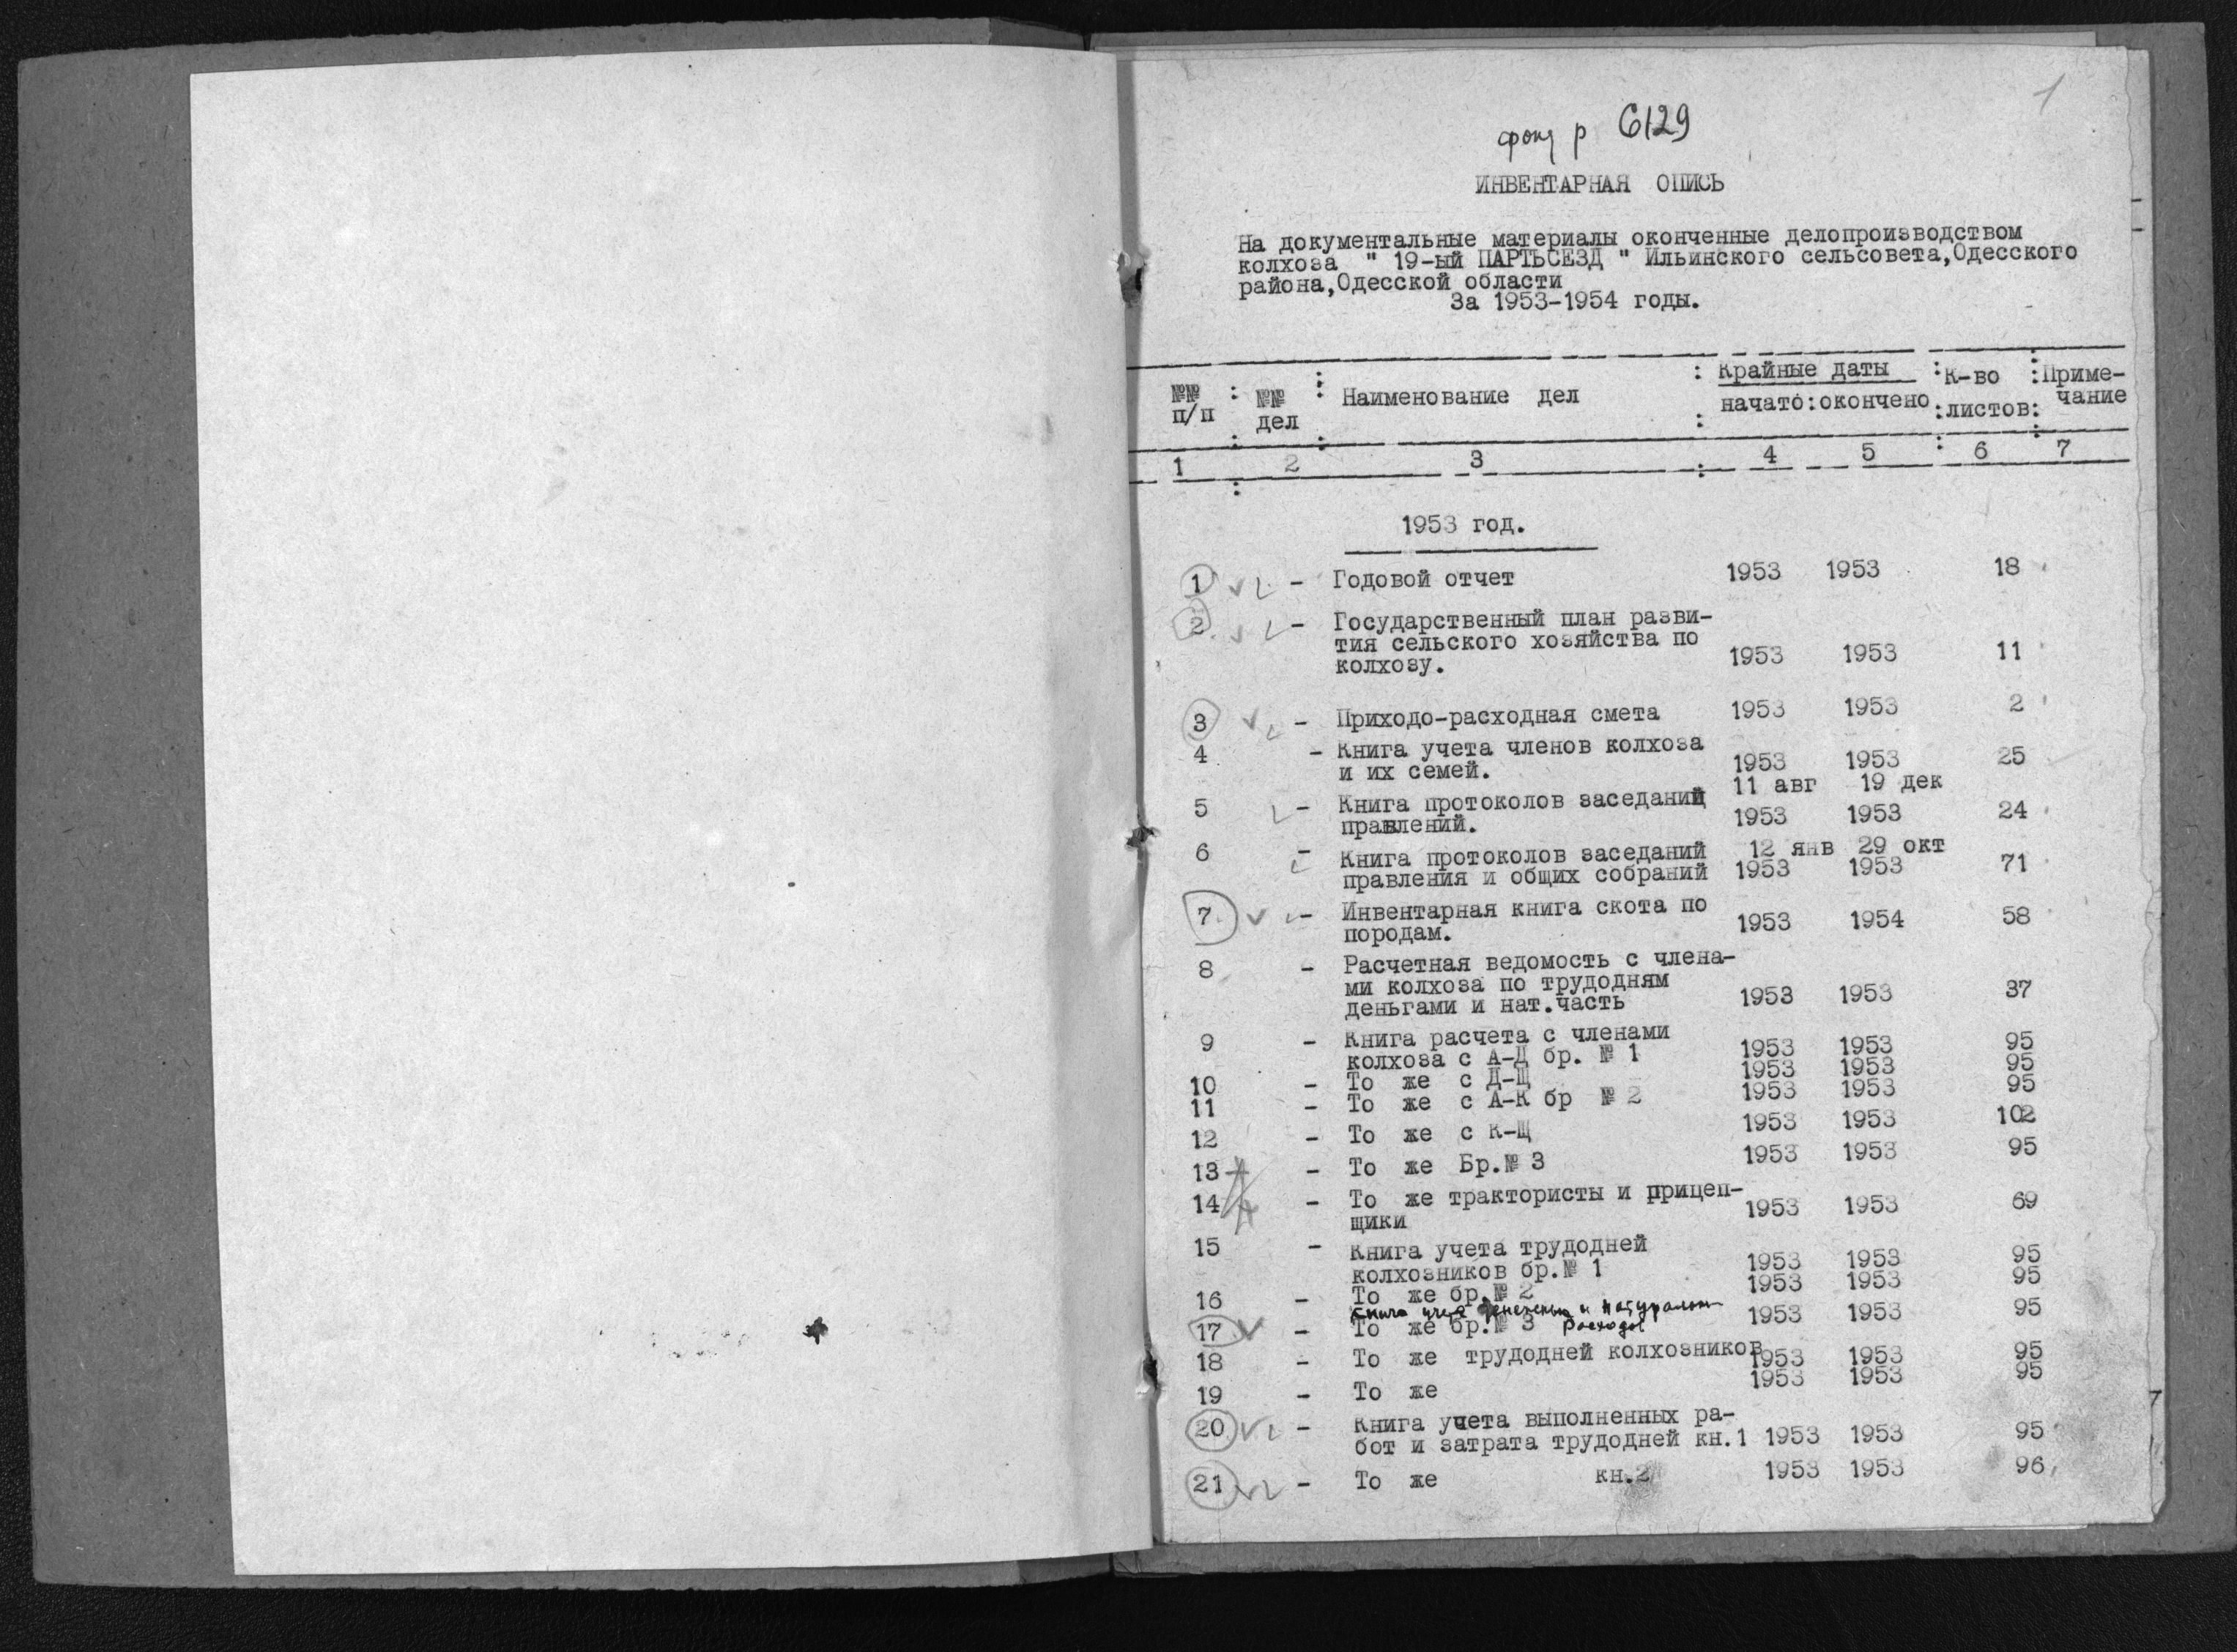 1
фонд р 6129
ИНВЕНТАРНАЯ ОПИСЬ
На документальные материалы оконченные делопроизводством
колхоза " 19-ый ПАРТЬСЕЗД " Ильинского сельсовета,Одесского
района,Одесской области
За 1953-1954 годы.
№№ п/п : №№ дел : Наименование дел : Крайные даты : К-во листов : Приме-чание
начато:окончено
1 2 3 4 5 6 7
1953 год.
1 - Годовой отчет 1953 1953 18
2 - Государственный план разви-
тия сельского хозяйства по
колхозу. 1953 1953 11
3 - Приходо-расходная смета 1953 1953 2
4 - Книга учета членов колхоза
и их семей. 1953 1953 25
11 авг 19 дек
5 - Книга протоколов заседаний
правлений. 1953 1953 24
6 - Книга протоколов заседаний 12 янв 29 окт
правления и общих собраний 1953 1953 71
7 - Инвентарная книга скота по
породам. 1953 1954 58
8 - Расчетная ведомость с члена-
ми колхоза по трудодням
деньгами и нат.часть 1953 1953 37
9 - Книга расчета с членами
колхоза с А-Д бр. № 1 1953 1953 95
10 - То же с Д-Щ 1953 1953 95
11 - То же с А-К бр № 2 1953 1953 95
12 - То же с К-Щ 1953 1953 102
13 - То же Бр.№ 3 1953 1953 95
14 - То же трактористы и прицеп-
щики 1953 1953 69
15 - Книга учета трудодней
колхозников бр.№ 1 1953 1953 95
16 - То же бр.№ 2 1953 1953 95
Книга учета денежных и натуральн
расходов
17 - То же бр.№ 3 1953 1953 95
18 - То же трудодней колхозников 1953 1953 95
19 - То же 1953 1953 95
20 - Книга учета выполненных ра-
бот и затрата трудодней кн.1 1953 1953 95
21 - То же кн.2 1953 1953 96